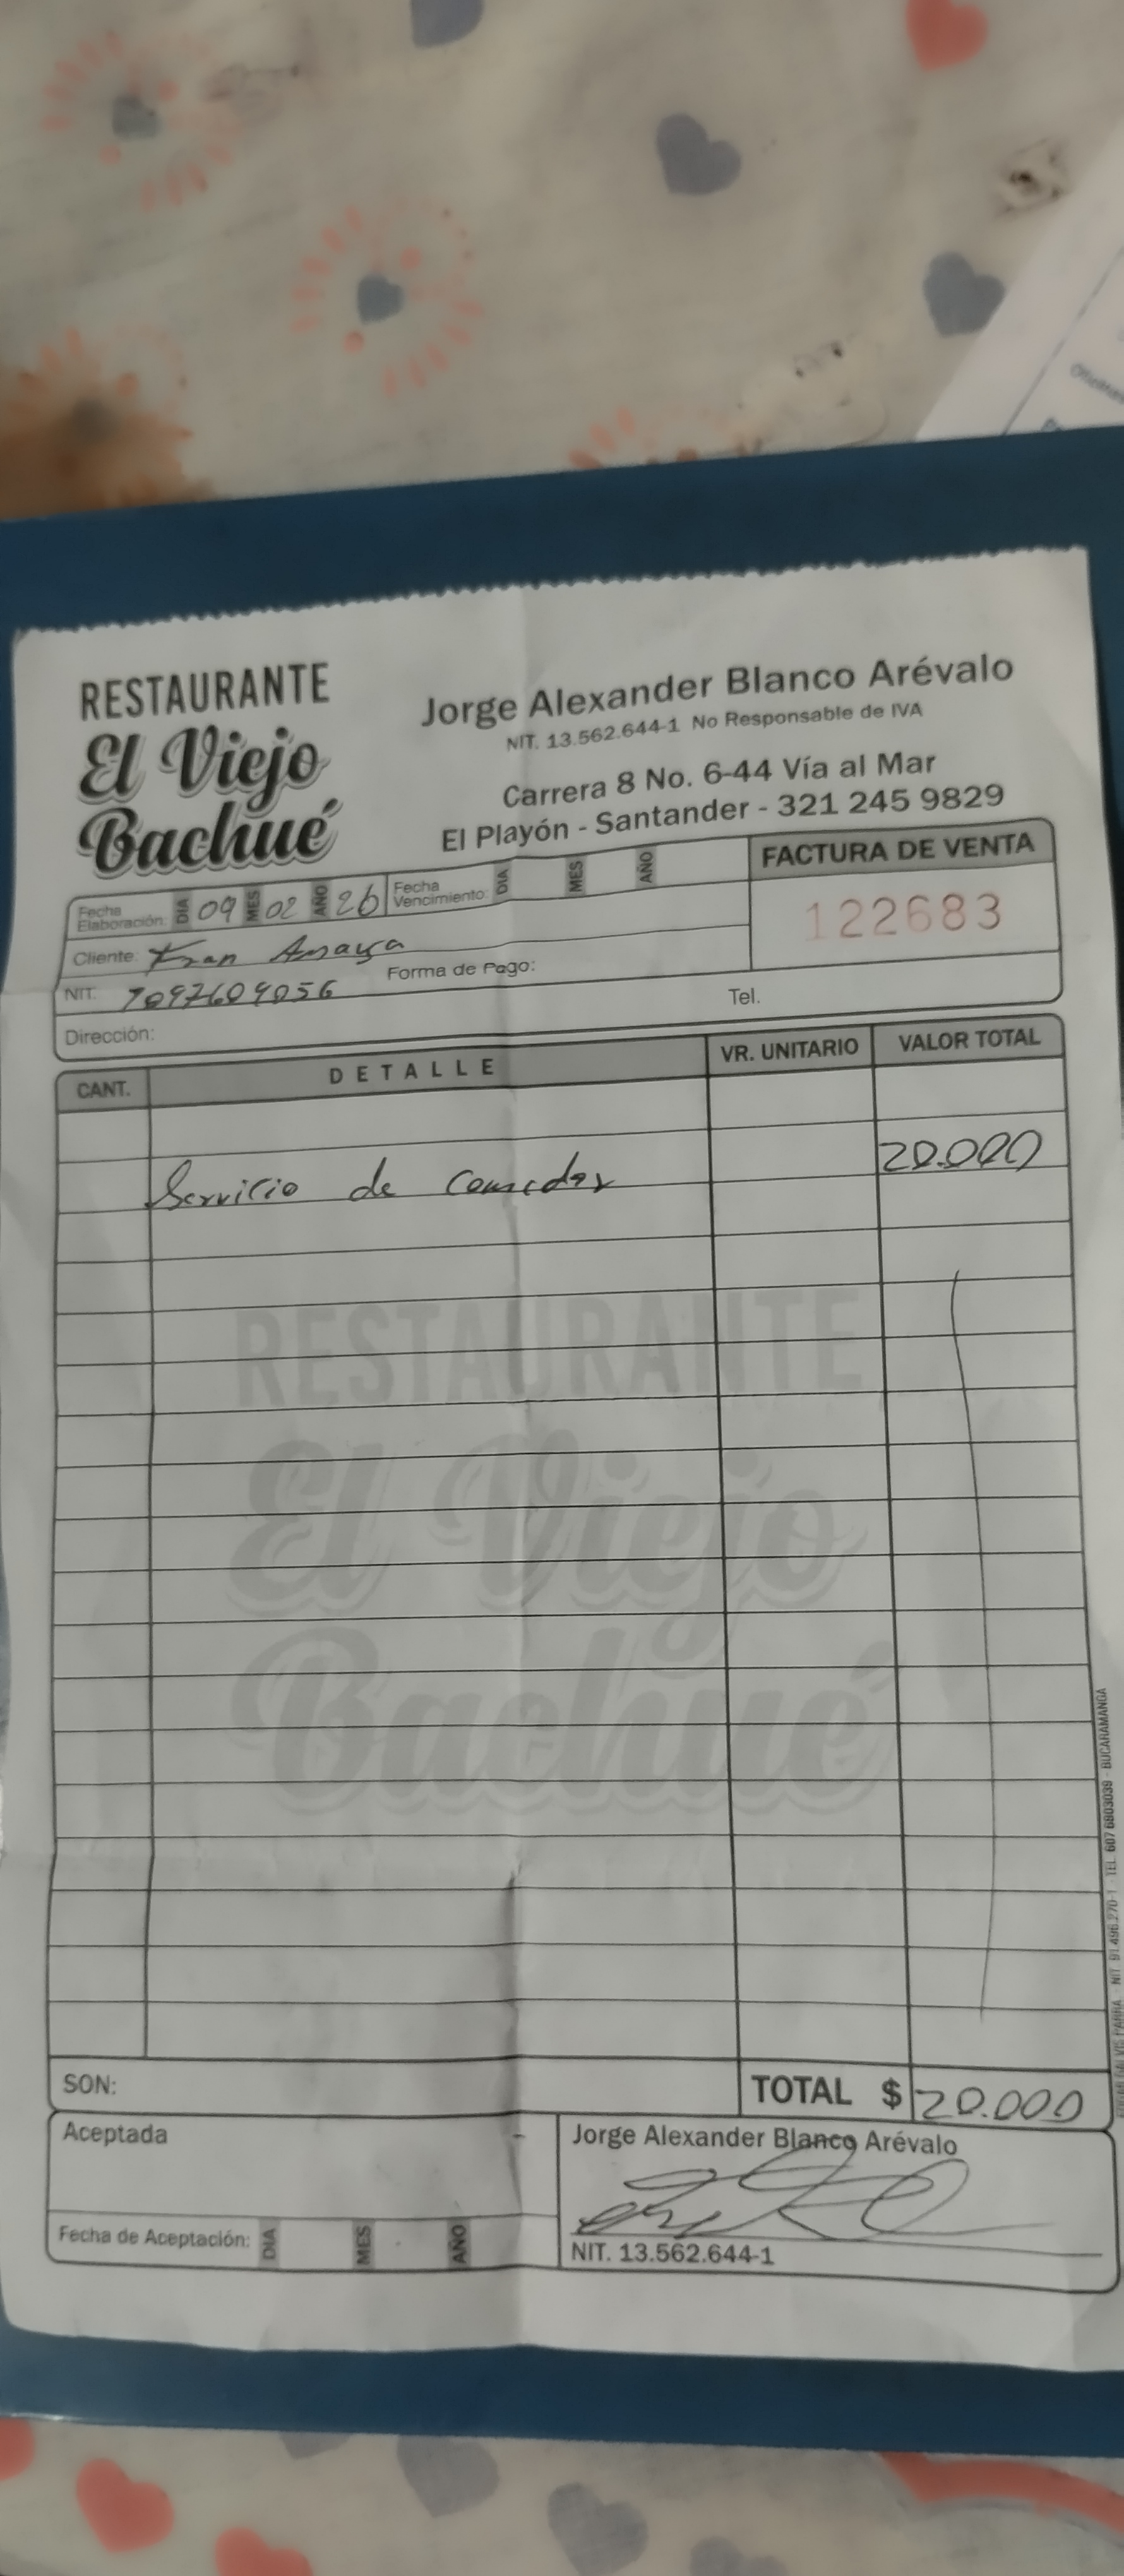 RESTAURANTE
El Viejo
Bachué
Jorge Alexander Blanco Arévalo
NIT. 13.562.644-1 No Responsable de IVA
Carrera 8 No. 6-44 Vía al Mar
El Playón - Santander - 321 245 9829
FACTURA DE VENTA
122683
Fecha Elaboración: DIA 09 MES 02 AÑO 26 Fecha Vencimiento: DIA MES AÑO
Cliente: Anaya
NIT. 1097609056 Forma de Pago:
Dirección: Tel.
CANT. DETALLE VR. UNITARIO VALOR TOTAL
Servicio de comedor 20.000
RESTAURANTE
El Viejo
Bachué
SON: TOTAL $ 20.000
Aceptada
Jorge Alexander Blanco Arévalo
Fecha de Aceptación: DIA MES AÑO
NIT. 13.562.644-1
NIT. 91.496.270-1 - TEL. 607 6803039 - BUCARAMANGA